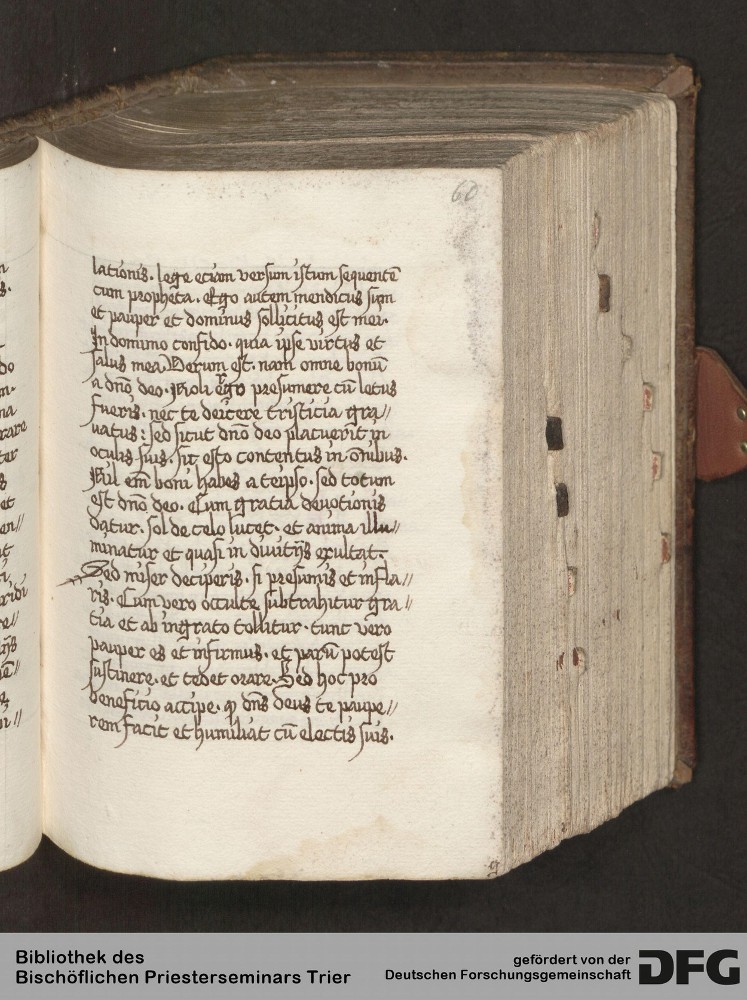 60
lationis. lege eciam versum istum sequentē
cum propheta. Ego autem mendicus sum
et pauper et dominus sollicitus est mei.
In domino confido. quia ipse virtus et
salus mea. Verum est. nam omne bonū
a dn̄o deo. Noli ergo presumere cū letus
fueris. nec te deicere tristicia gra//
uatus: sed sicut dn̄o deo placuerit in
oculis suis. sit esto contentus in ōnibus.
Nil em̄ boni habes a teipso. sed totum
est dn̄o deo. Cum gratia deuotionis
datur. sol de celo lucet. et anima illu//
minatur et quasi in diuitijs exultat.
Sed miser deciperis. si presumis et infla//
ris. Cum vero occulte subtrahitur gra//
tia et ab ingrato tollitur. tunc vero
pauper es et infirmus. et parū potest
sustinere. et tedet orare. Sed hoc pro
beneficio accipe. ꝙ dn̄s deus te paupe//
rem facit et humiliat cū electis suis.
Bibliothek des
Bischöflichen Priesterseminars Trier
gefördert von der
Deutschen Forschungsgemeinschaft
DFG